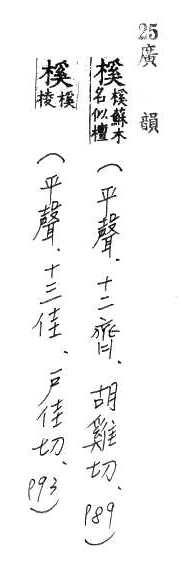 25廣韻
榽榽蘇木名似檀（平聲、十二齊、胡雞切、P89）
榽榽棱（平聲、十三佳、戶佳切、P93）